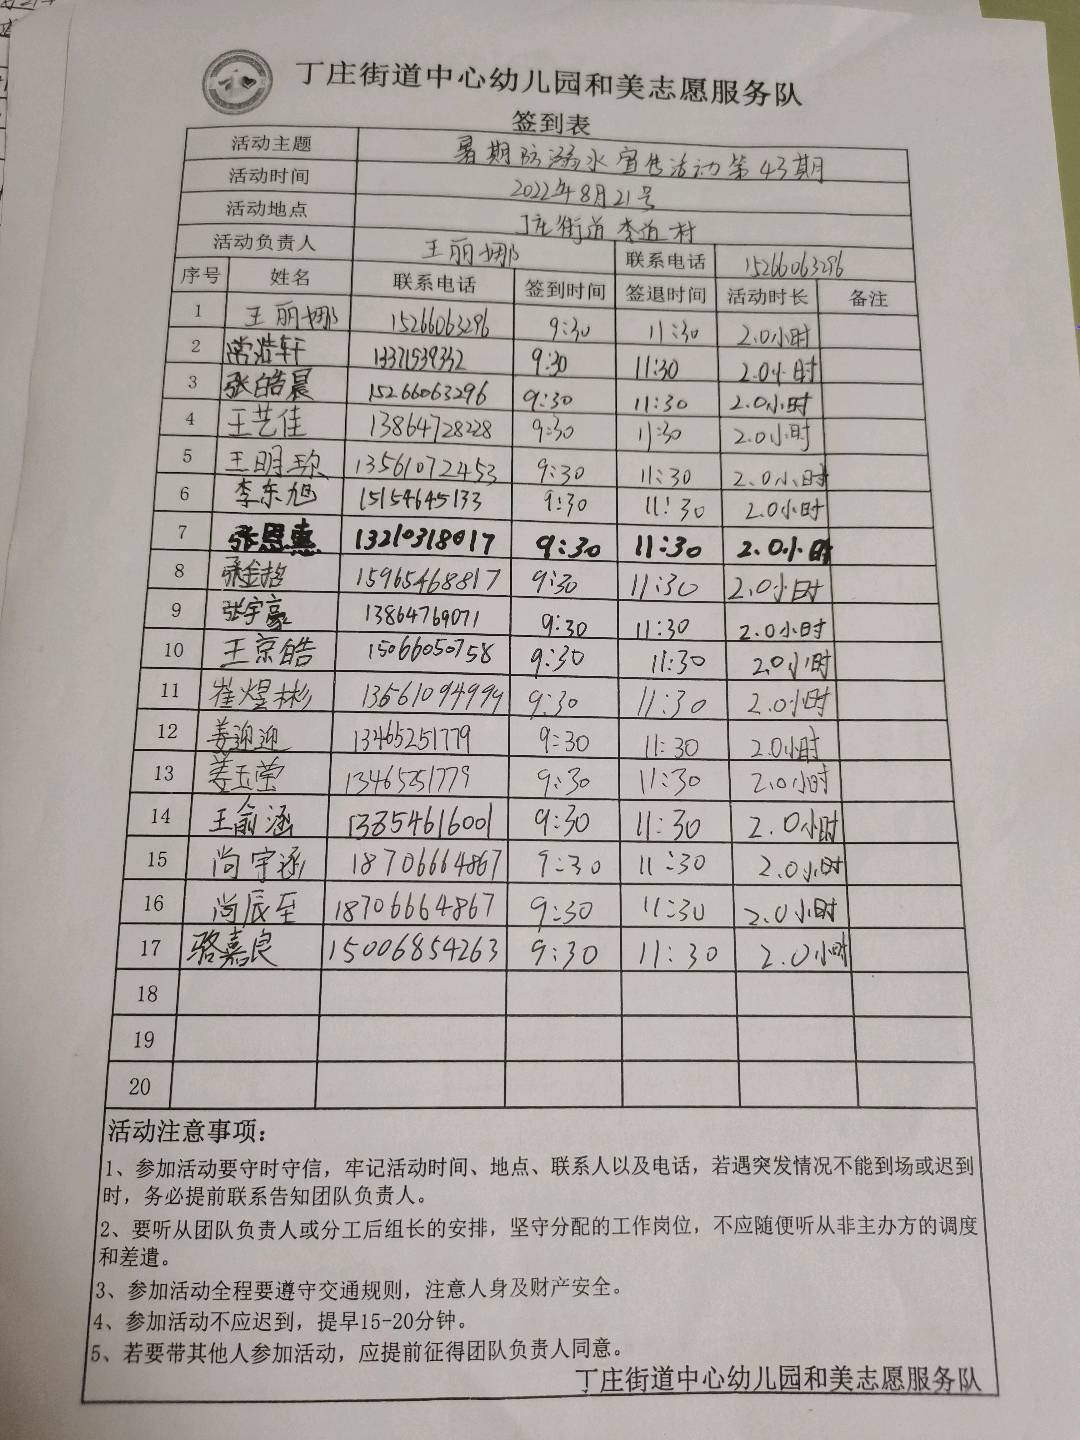 丁庄街道中心幼儿园和美志愿服务队
签到表
活动主题 暑期防溺水宣传活动第43期
活动时间 2022年8月21号
活动地点 丁庄街道李道村
活动负责人 王丽娜 联系电话 15266063296
序号 姓名 联系电话 签到时间 签退时间 活动时长 备注
1 王丽娜 15266063296 9:30 11:30 2.0小时
2 常浩轩 13371539332 9:30 11:30 2.0小时
3 张皓晨 15266063296 9:30 11:30 2.0小时
4 王艺佳 13864728228 9:30 11:30 2.0小时
5 王明琼 13561072453 9:30 11:30 2.0小时
6 李东旭 15154645133 9:30 11:30 2.0小时
7 张恩惠 13210318017 9:30 11:30 2.0小时
8 15965468817 9:30 11:30 2.0小时
9 张宇豪 13864769071 9:30 11:30 2.0小时
10 王京皓 15066050758 9:30 11:30 2.0小时
11 崔煜彬 13561094999 9:30 11:30 2.0小时
12 姜迎迎 13465251779 9:30 11:30 2.0小时
13 姜玉莹 13465251779 9:30 11:30 2.0小时
14 王俞涵 13854616001 9:30 11:30 2.0小时
15 尚宇涵 18706664867 9:30 11:30 2.0小时
16 尚辰至 18706664867 9:30 11:30 2.0小时
17 骆嘉良 15006854263 9:30 11:30 2.0小时
18
19
20
活动注意事项：
1、参加活动要守时守信，牢记活动时间、地点、联系人以及电话，若遇突发情况不能到场或迟到
时，务必提前联系告知团队负责人。
2、要听从团队负责人或分工后组长的安排，坚守分配的工作岗位，不应随便听从非主办方的调度
和差遣。
3、参加活动全程要遵守交通规则，注意人身及财产安全。
4、参加活动不应迟到，提早15-20分钟。
5、若要带其他人参加活动，应提前征得团队负责人同意。
丁庄街道中心幼儿园和美志愿服务队